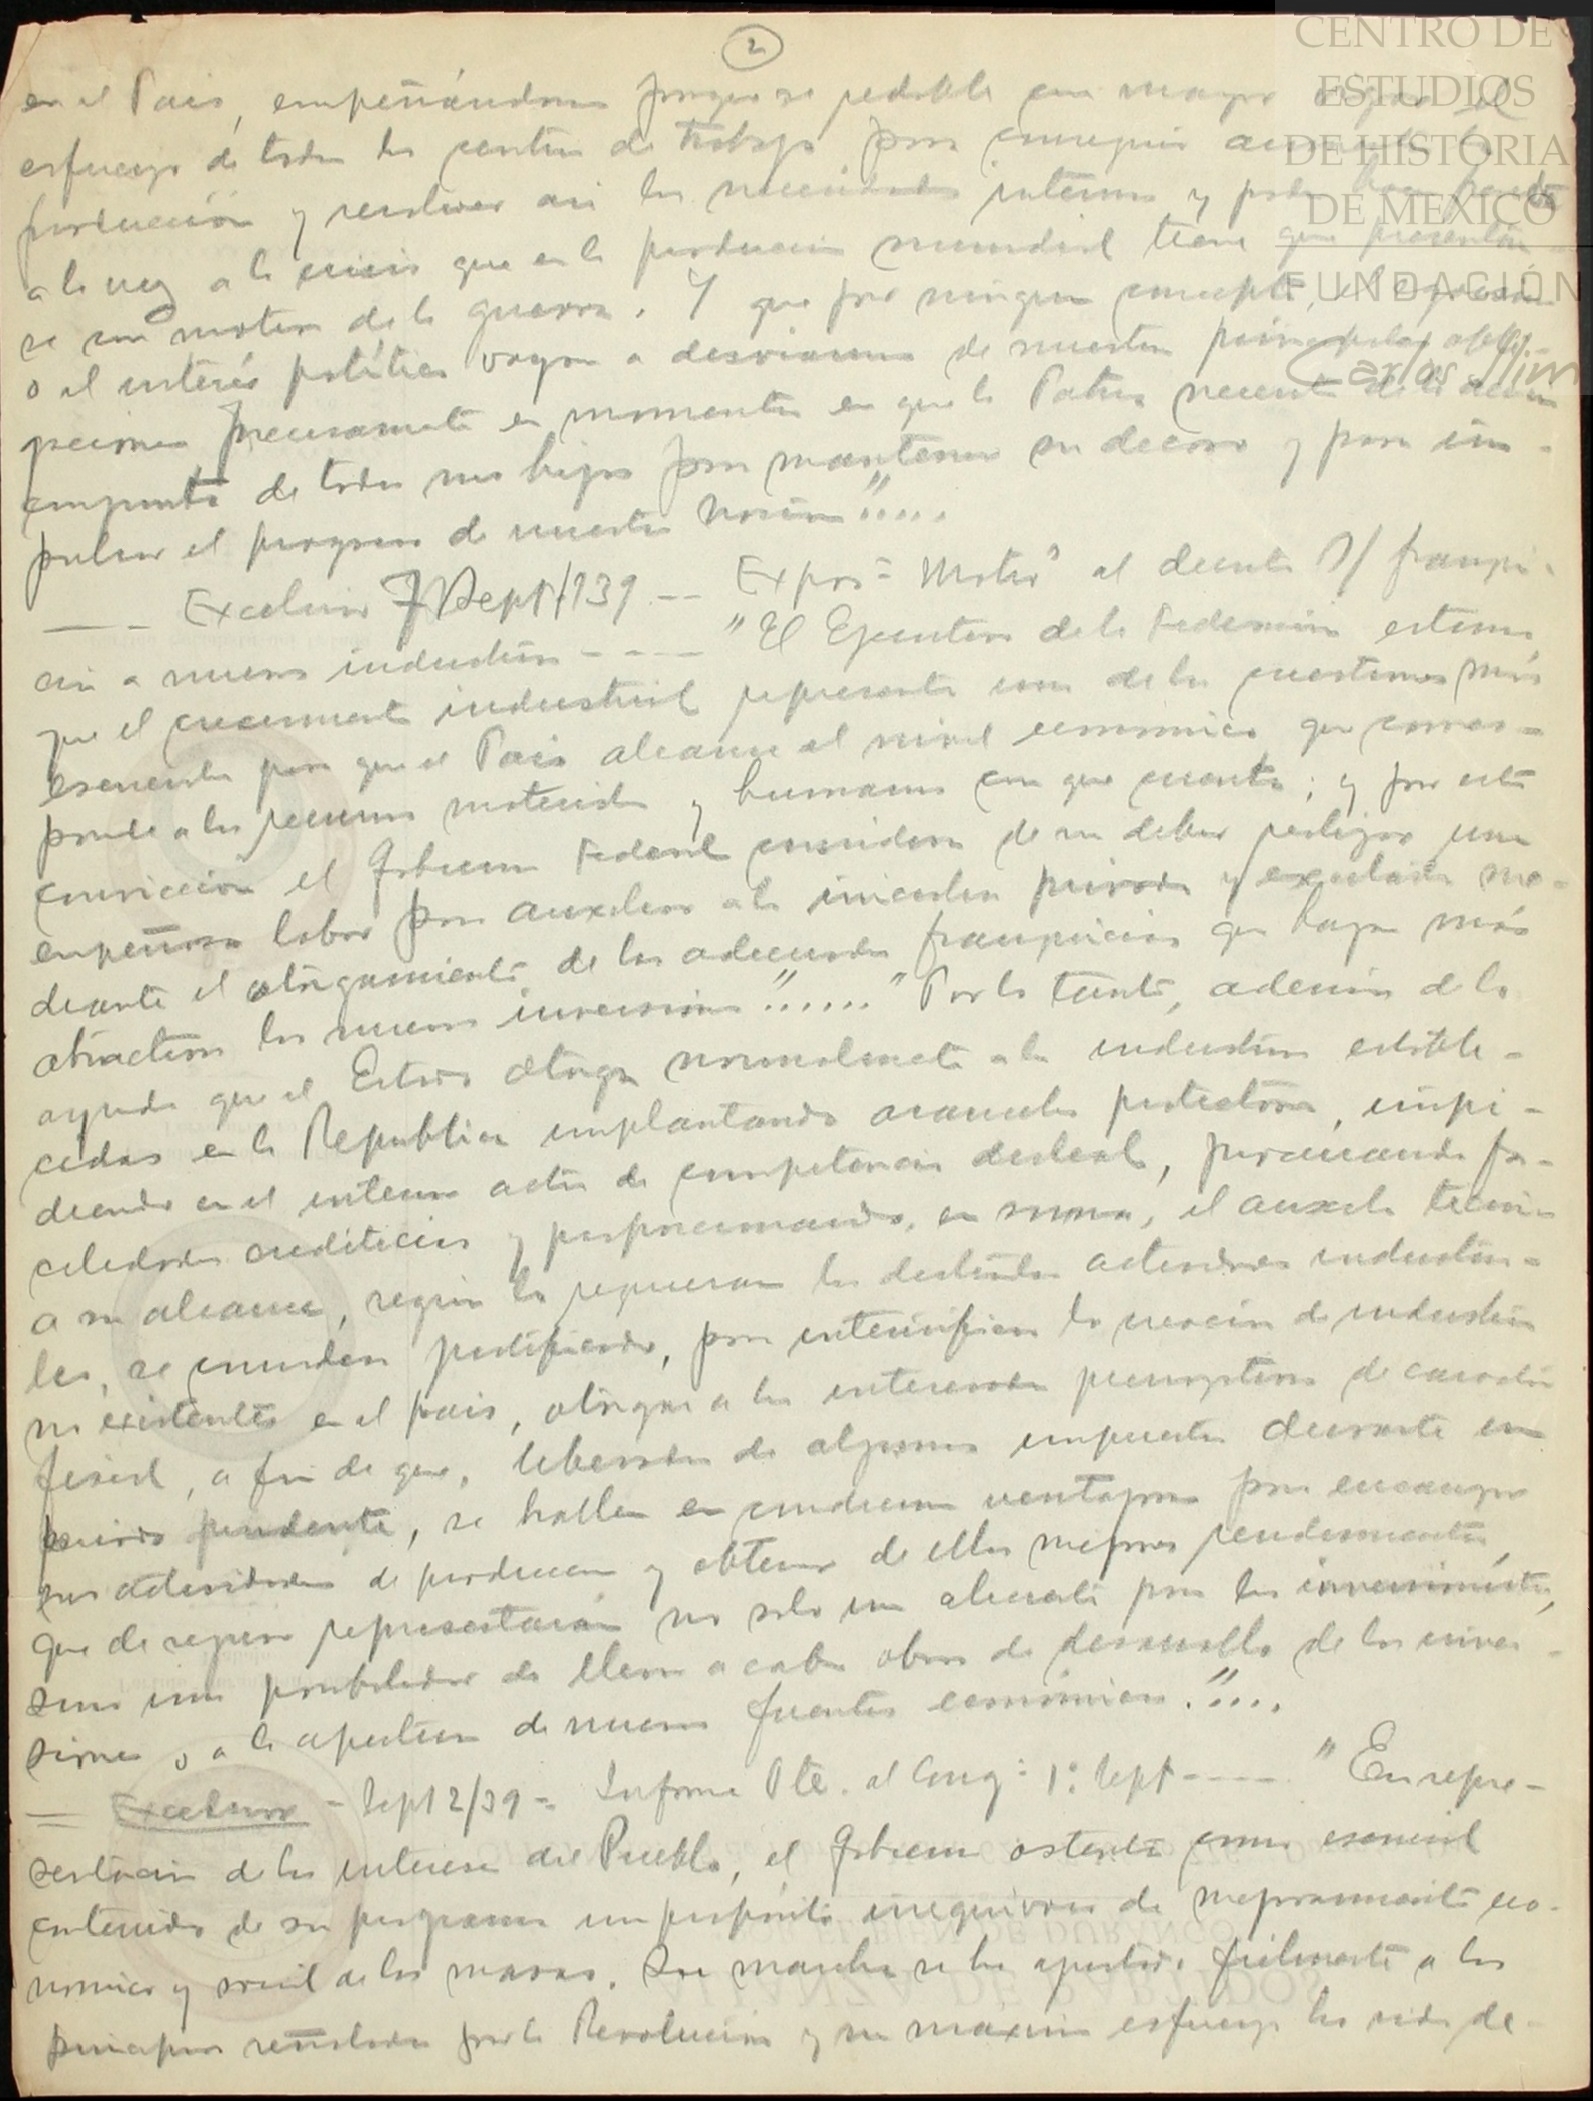 2
en el Pais, empeñándonos porque se redoble con mayor vigor el
esfuerzo de todos los centros de trabajo para conseguir aumentar la
producción y resolver asi las necesidades internas y poder hacer frente
a la vez a la crisis que en la produccion mundial tiene que presentar-
se con motivo de la guerra. Y que por ningun concepto, el egoismo
o el interés político vayan a desviarnos de nuestras principales obli-
gaciones precisamente en momentos en que la Patria necesita de la accion
conjunta de todos sus hijos para mantener su decoro y para im-
pulsar el progreso de nuestra Nación"....
—— Excelsior 7/Sept/939 -- Expos= Motivos al decreto s/ franqui-
cia a nuevas industrias ---- "El Ejecutivo de la Federación estima
que el crecimiento industrial representa una de las cuestiones más
esenciales para que el Pais alcance el nivel economico que corres-
ponde a los recursos materiales y humanos con que cuenta; y por esta
convicción el Gobierno Federal considera de su deber realizar una
empeñosa labor para auxiliar a la iniciativa privada y excitarla me-
diante el otorgamiento de las adecuadas franquicias que hagan más
atractivas las nuevas inversiones"......"Por lo tanto, además de la
ayuda que el Estado otorga normalmente a las industrias estable-
cidas en la Republica implantando aranceles protectores, impi-
diendo en el interior actos de competencia desleal, procurando fa-
cilidades crediticias y proporcionando, en suma, el auxilio tecnico
a su alcance, según lo requieran las distintas actividades industria-
les, se considera justificado, para intensificar la creación de industrias
no existentes en el pais, otorgar a los interesados prerrogativas de carácter
fiscal, a fin de que, liberados de algunos impuestos durante un
periodo prudente, se hallen en condiciones ventajosas para encauzar
sus actividades de produccion y obtener de ellas mejores rendimientos,
que de seguro representarán no solo un aliciente para los inversionistas,
sino una posibilidad de llevar a cabo obras de desarrollo de las inver-
siones o a la apertura de nuevas fuentes económicas."....
= Excelsior - Sept 2/39 = Informe Pte. al Cong= 1º Sept ---- "En repre-
sentación de los intereses del Pueblo, el Gobierno ostenta como esencial
contenido de su programa un propósito inequivoco de mejoramiento eco-
nomico y social de las masas. Su marcha se ha ajustado fielmente a los
principios señalados por la Revolución y su máximo esfuerzo ha sido de-
CENTRO DE
ESTUDIOS
DE HISTORIA
DE MÉXICO
FUNDACIÓN
Carlos Slim